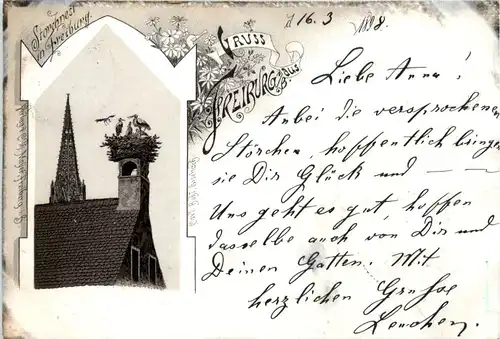 Storchnest
Freiburg.
GRUSS
AUS
FREIBURG
d. 16. 3. 1898.
Liebe Anna!
Anbei die versprochenen
Störchen, hoffentlich bringen
sie Dir Glück und —
Uns geht es gut, hoffen
dasselbe auch von Dir und
Deinen Gatten. Mit
herzlichen Grusse
Lenchen.